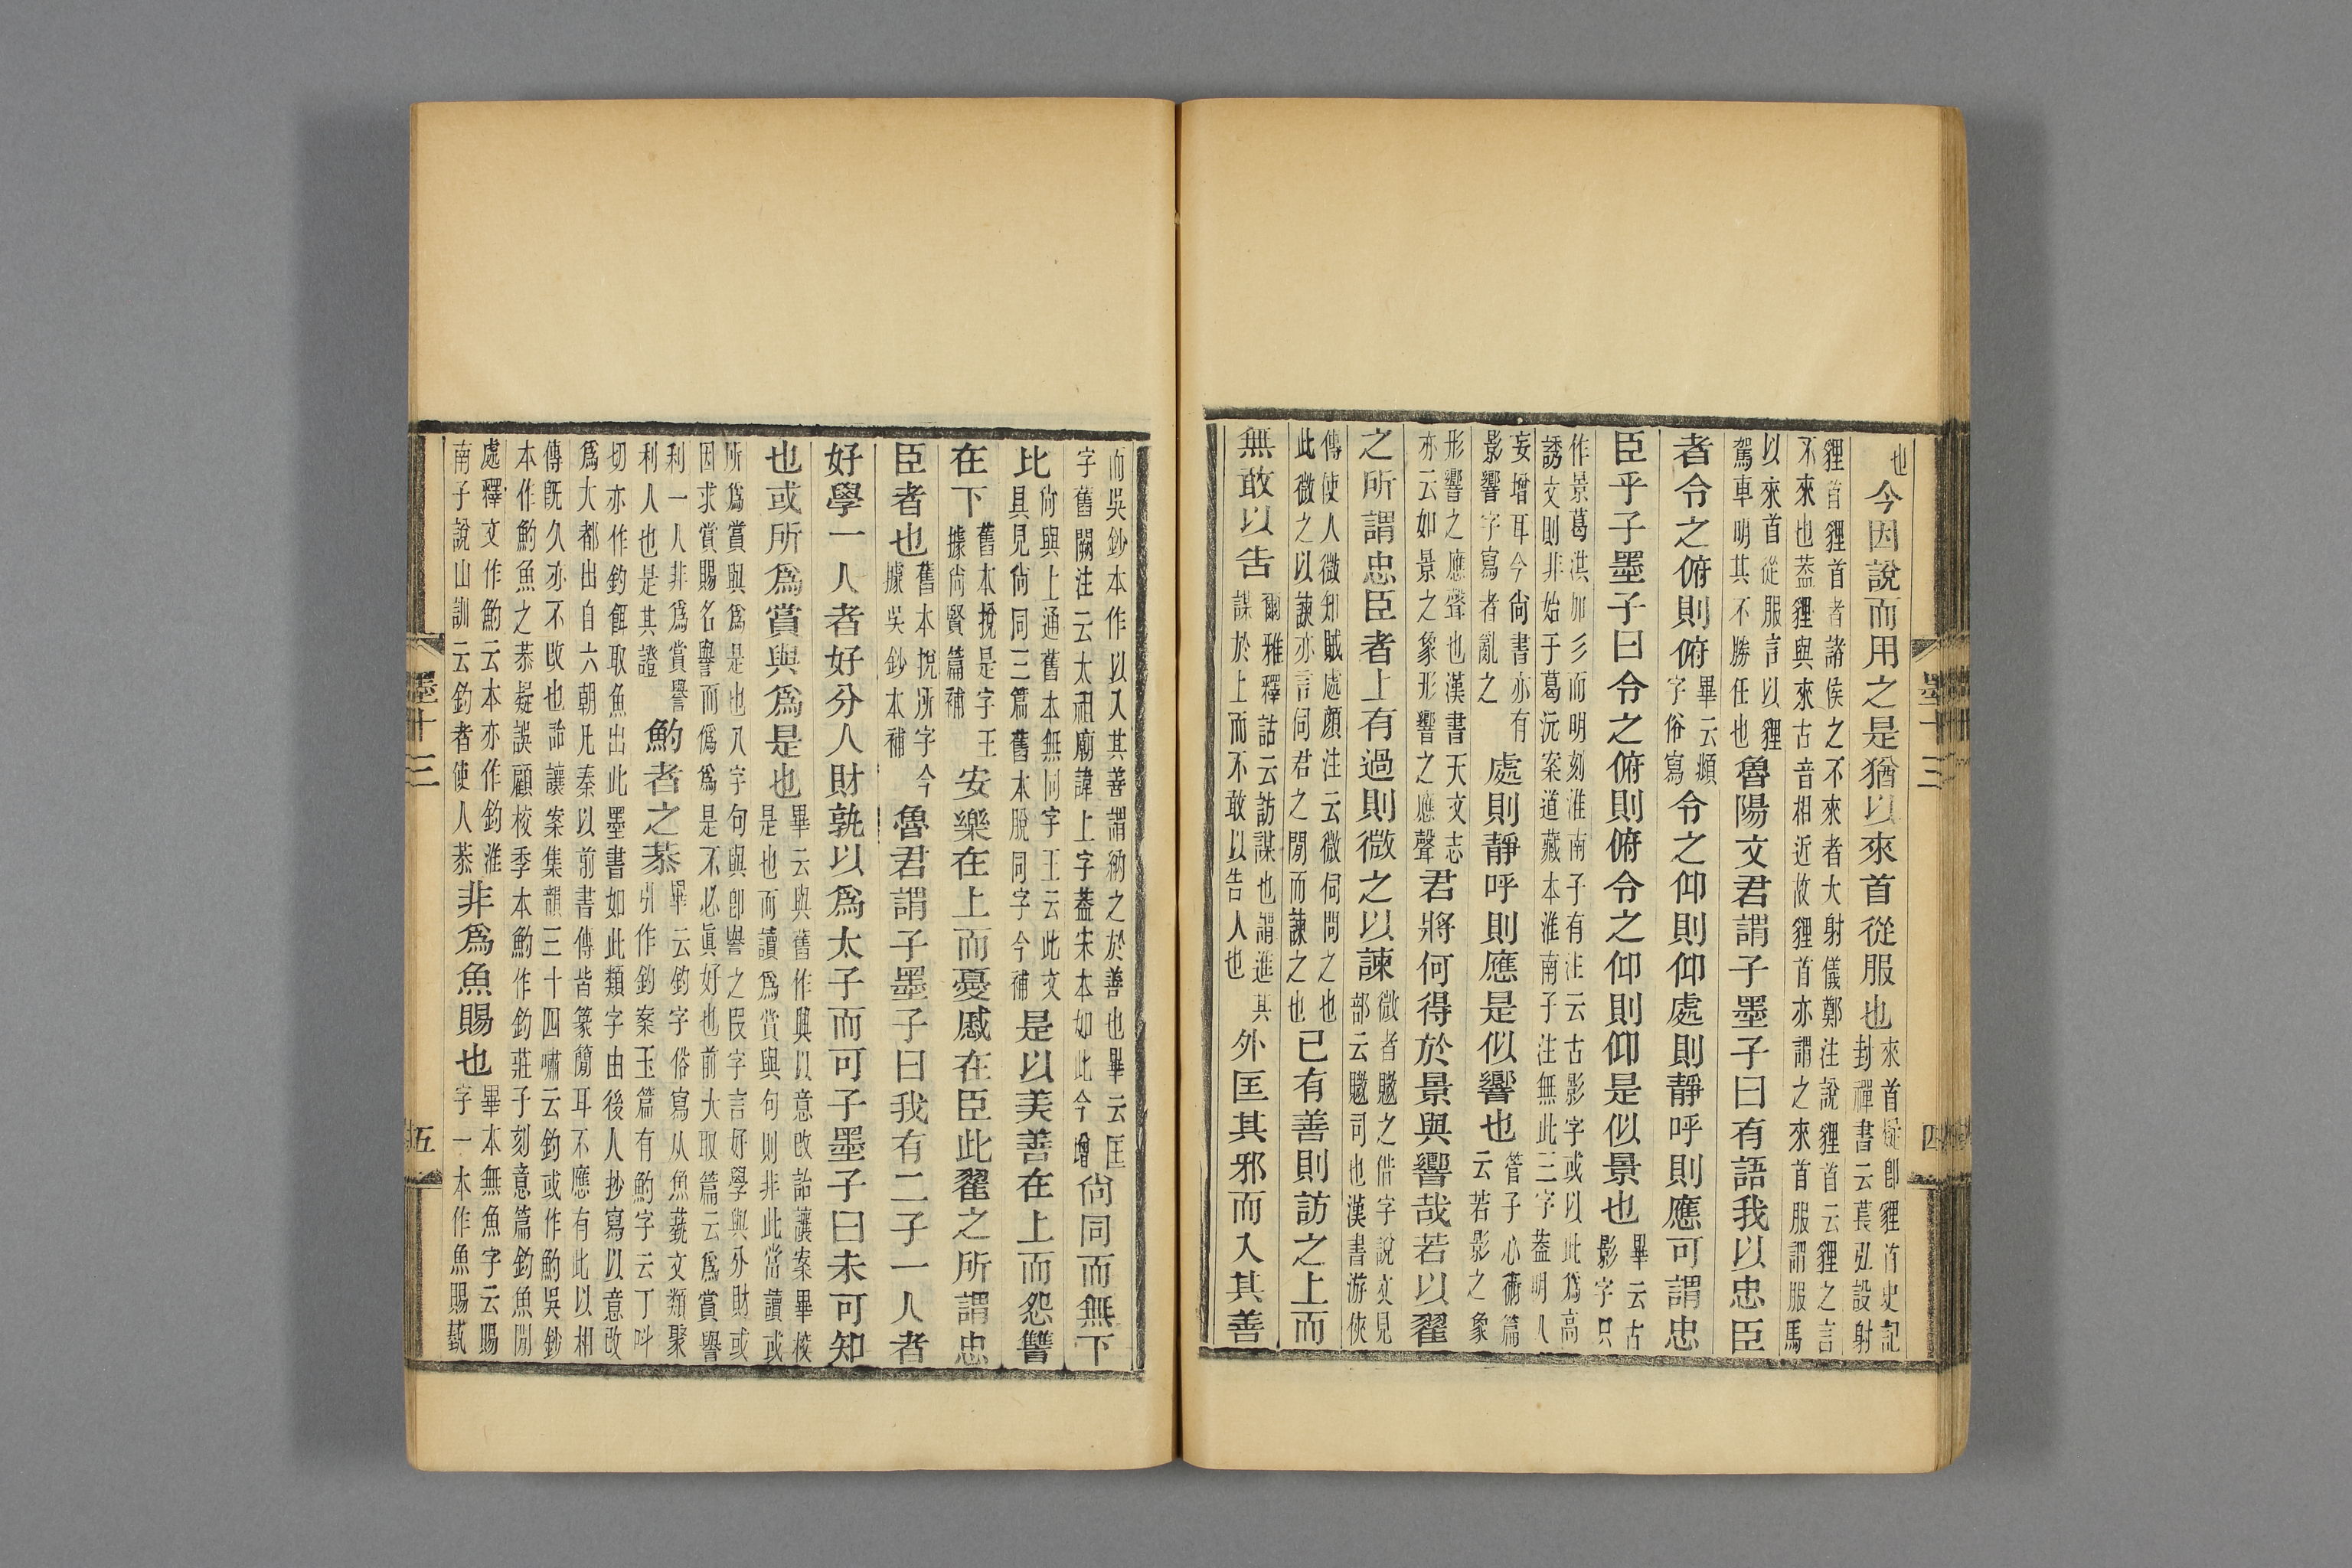 墨十三
四
也今因說而用之是猶以來首從服也來首疑卽貍首史記封禪書云萇弘設射
貍首貍首者諸侯之不來者大射儀鄭注說貍首云貍之言不來也蓋貍與來古音相近故貍首亦謂之來首服謂服馬
以來首從服言以貍駕車明其不勝任也魯陽文君謂子墨子曰有語我以忠臣
者令之俯則俯畢云頫字俗寫令之仰則仰處則靜呼則應可謂忠
臣乎子墨子曰令之俯則俯令之仰則仰是似景也畢云古影字只
作景葛洪加彡而明刻淮南子有注云古影字或以此爲高誘文則非始于葛沅案道藏本淮南子注無此三字蓋明人
妄增耳今尚書亦有影響字寫者亂之處則靜呼則應是似響也管子心術篇云若影之象
形響之應聲也漢書天文志亦云如景之象形響之應聲君將何得於景與響哉若以翟
之所謂忠臣者上有過則微之以諫微者覹之借字說文見部云覹司也漢書游俠
傳使人微知賊處顏注云微伺問之也此微之以諫亦言伺君之閒而諫之也已有善則訪之上而
無敢以告爾雅釋詁云訪謀也謂進其謀於上而不敢以告人也外匡其邪而入其善
而吳鈔本作以入其善謂納之於善也畢云匡字舊闕注云太祖廟諱上字蓋宋本如此今增尚同而無下
比尚與上通舊本無同字王云此文具見尚同三篇舊本脫同字今補是以美善在上而怨讎
在下舊本挩是字王據尚賢篇補安樂在上而憂慼在臣此翟之所謂忠
臣者也舊本挩所字今據吳鈔本補魯君謂子墨子曰我有二子一人者
好學一人者好分人財孰以爲太子而可子墨子曰未可知
也或所爲賞與爲是也畢云與舊作興以意改詒讓案畢校是也而讀爲賞與句則非此當讀或
所爲賞與爲是也八字句與卽譽之叚字言好學與分財或因求賞賜名譽而僞爲是不必眞好也前大取篇云爲賞譽
利一人非爲賞譽利人也是其證魡者之恭畢云釣字俗寫从魚蓺文類聚引作釣案玉篇有魡字云丁叫
切亦作釣餌取魚出此墨書如此類字由後人抄寫以意改爲大都出自六朝凡秦以前書傳皆篆簡耳不應有此以相
傳旣久亦不改也詒讓案集韻三十四嘯云釣或作魡吳鈔本作魡魚之恭疑誤顧校季本魡作釣莊子刻意篇釣魚閒
處釋文作魡云本亦作釣淮南子說山訓云釣者使人恭非爲魚賜也畢本無魚字云賜字一本作魚賜蓺
墨十三
五